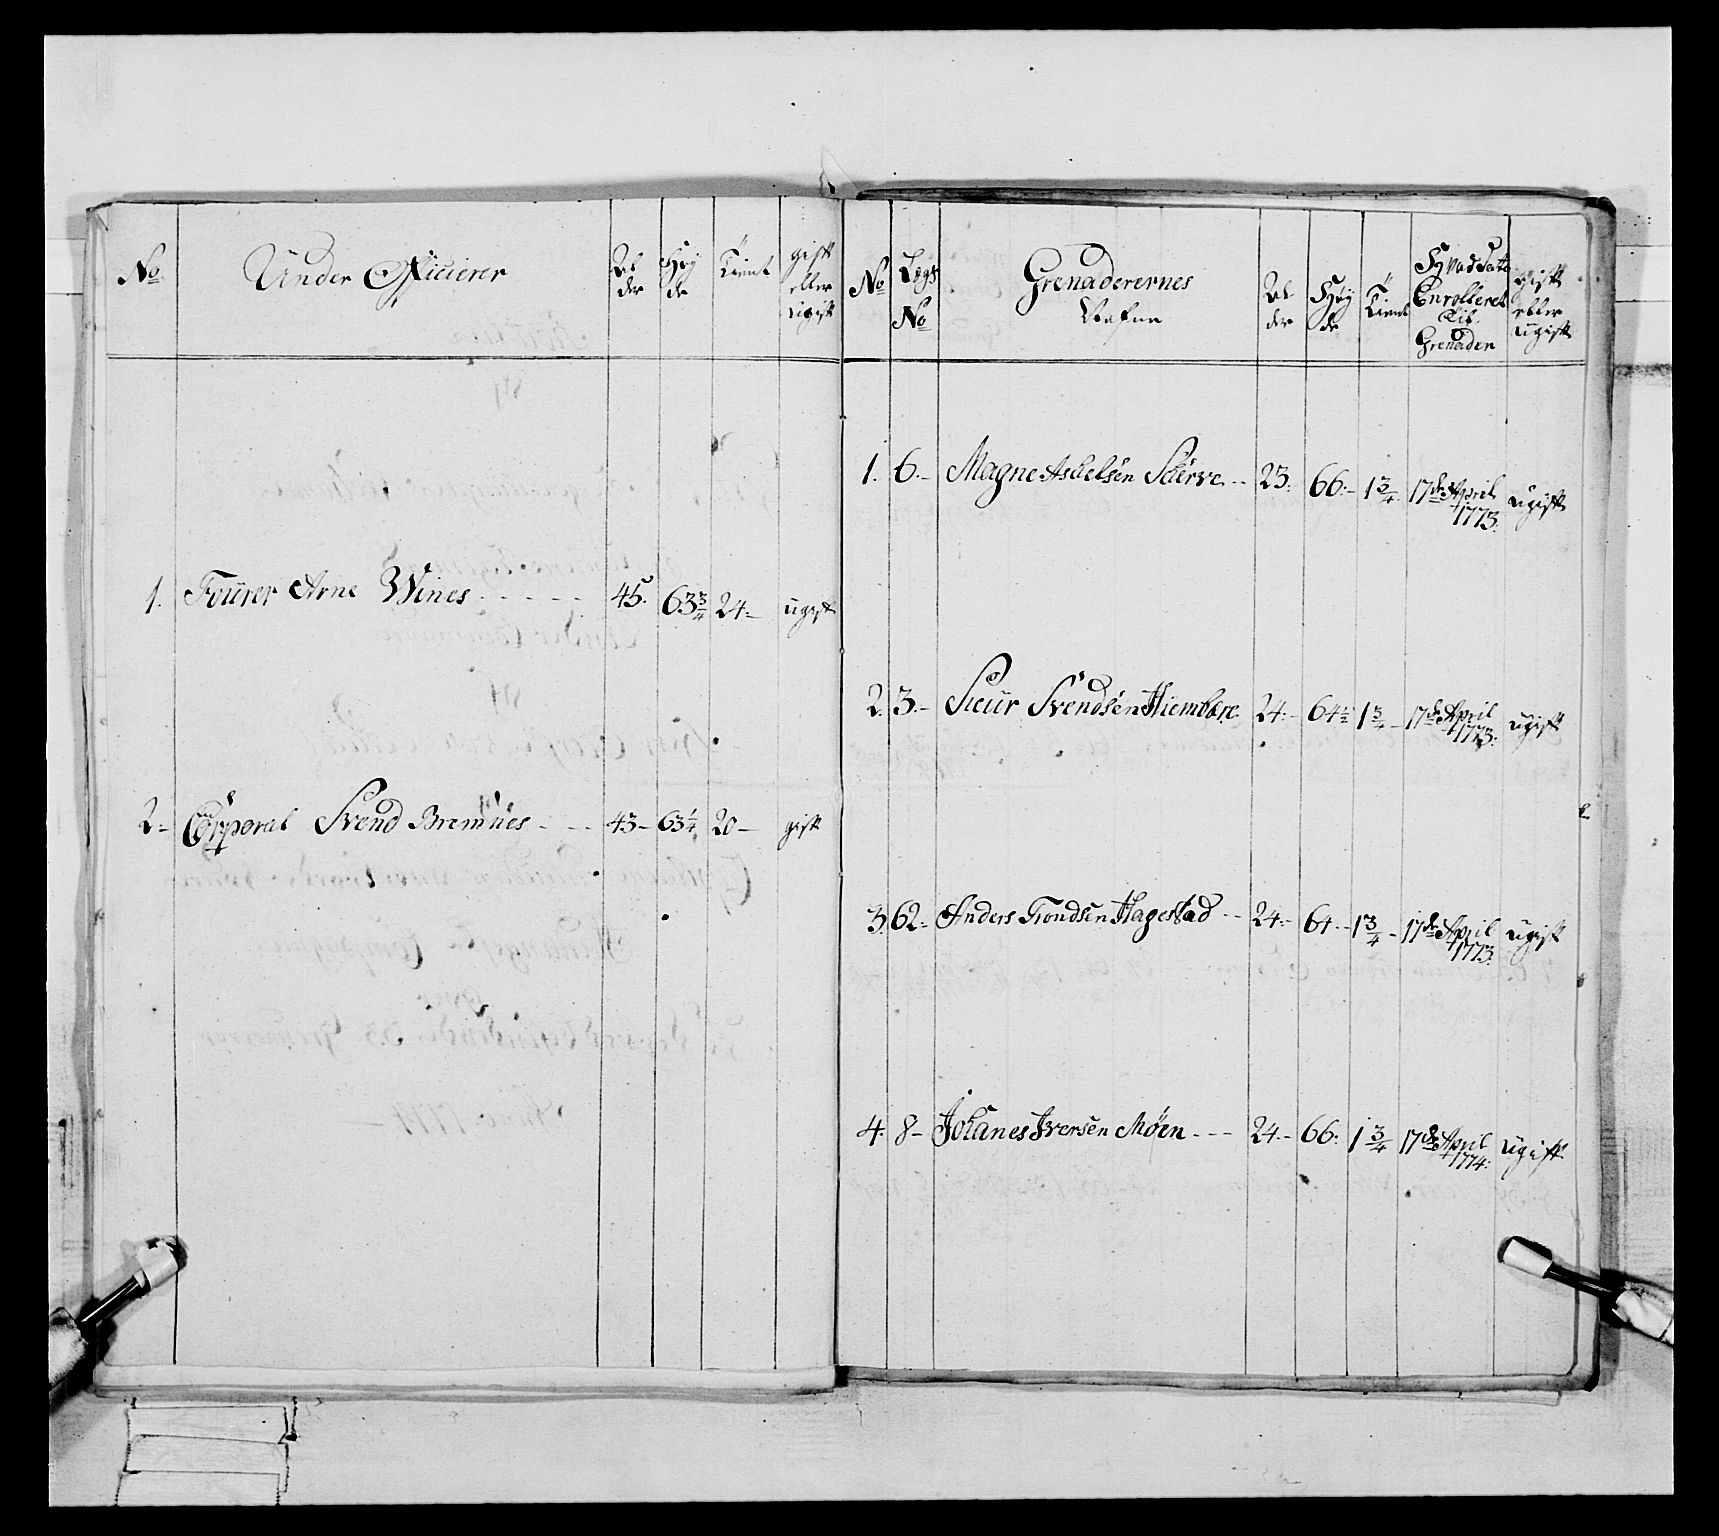 No
Under Officierer
Al
der
Høy
de
Tient
gift
eller
ugift
1. Fourer Arne Wines - - - - - 45. 63 3/4 24 - ugift
2 - Corporal Svend Bremnes - - - 43 - 63 1/4 20 - gift
No
Lægs
No
Grenaderernes
Nafne
Al
der
Høy
de
Tient
Hvad Dato
Enrolleret
Til
Grenader
gift
eller
ugift
1. 6. - Magne Askelsen Skerve - - 23. 66. - 1 3/4. 17de April 1773. ugift
2. 3. - Siur Svendsen Hiembere 24. - 64 1/2 1 3/4 - 17de April 1773. ugift
3. 62 - Anders Trondsen Hagestad - - 24. - 64. - 1 3/4 - 17de April 1773. ugift
4. 8 - Johanes Iversen Møen - - - 24. - 66. 1 3/4 17de April 1774. ugift